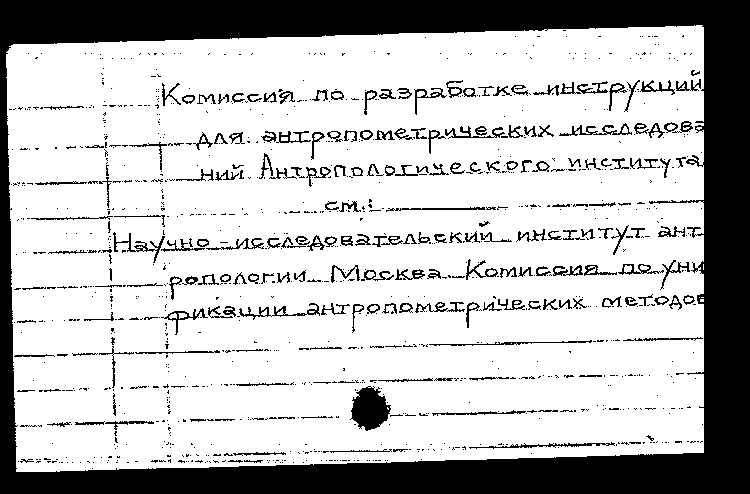 Комиссия по разработке инструкций
для антропометрических исследова
ний Антропологического института
см.:
Научно-исследовательский институт ант
ропологии Москва Комиссия по уни
фикации антропометрических методов